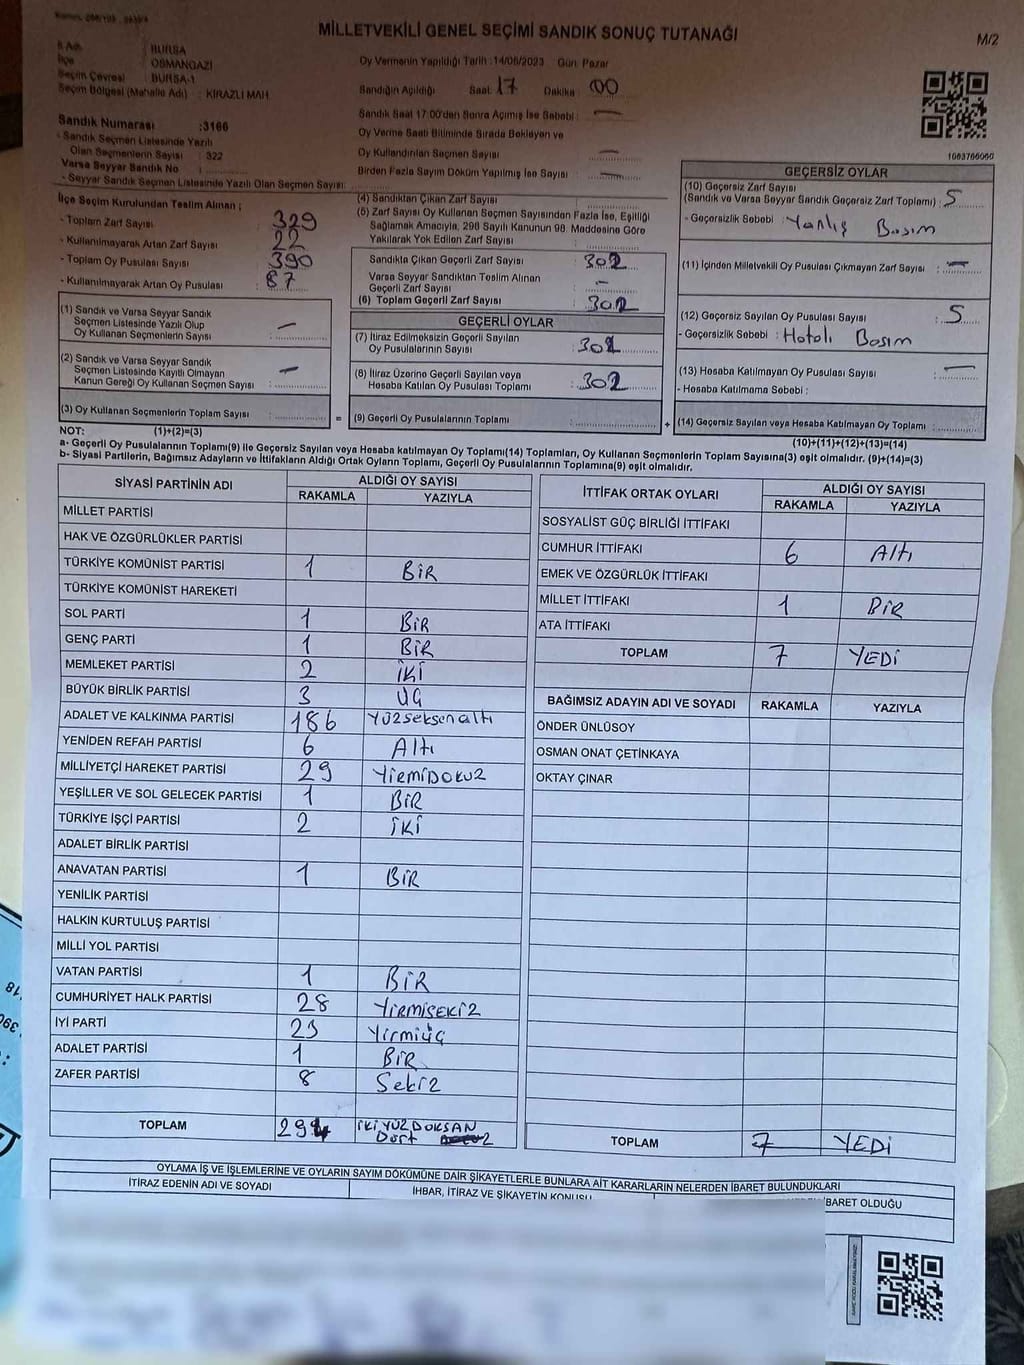 MİLLETVEKİLİ GENEL SEÇİMİ SANDIK SONUÇ TUTANAĞI
M/2
İl Adı : BURSA
İlçe : OSMANGAZİ
Seçim Çevresi : BURSA-1
Seçim Bölgesi (Mahalle Adı) : KİRAZLI MAH.
Sandık Numarası :3166
- Sandık Seçmen Listesinde Yazılı
Olan Seçmenlerin Sayısı : 322
Varsa Seyyar Sandık No :
- Seyyar Sandık Seçmen Listesinde Yazılı Olan Seçmen Sayısı:
Oy Vermenin Yapıldığı Tarih :14/05/2023 Gün: Pazar
Sandığın Açıldığı Saat: 17 Dakika 00
Sandık Saat 17:00'dan Sonra Açılmış İse Sebebi : —
Oy Verme Saati Bitiminde Sırada Bekleyen ve
Oy Kullandırılan Seçmen Sayısı : —
Birden Fazla Sayım Döküm Yapılmış İse Sayısı : —
1003766060
İlçe Seçim Kurulundan Teslim Alınan ;
- Toplam Zarf Sayısı : 329
- Kullanılmayarak Artan Zarf Sayısı : 22
- Toplam Oy Pusulası Sayısı : 390
- Kullanılmayarak Artan Oy Pusulası : 87
(1) Sandık ve Varsa Seyyar Sandık
Seçmen Listesinde Yazılı Olup
Oy Kullanan Seçmenlerin Sayısı : —
(2) Sandık ve Varsa Seyyar Sandık
Seçmen Listesinde Kayıtlı Olmayan
Kanun Gereği Oy Kullanan Seçmen Sayısı : —
(3) Oy Kullanan Seçmenlerin Toplam Sayısı :
(4) Sandıktan Çıkan Zarf Sayısı :
(5) Zarf Sayısı Oy Kullanan Seçmen Sayısından Fazla İse, Eşitliği
Sağlamak Amacıyla, 298 Sayılı Kanunun 98. Maddesine Göre
Yakılarak Yok Edilen Zarf Sayısı :
Sandıkta Çıkan Geçerli Zarf Sayısı : 302
Varsa Seyyar Sandıktan Teslim Alınan
Geçerli Zarf Sayısı : —
(6) Toplam Geçerli Zarf Sayısı : 302
GEÇERLİ OYLAR
(7) İtiraz Edilmeksizin Geçerli Sayılan
Oy Pusulalarının Sayısı : 302
(8) İtiraz Üzerine Geçerli Sayılan veya
Hesaba Katılan Oy Pusulası Toplamı : 302
= (9) Geçerli Oy Pusulalarının Toplamı :
GEÇERSİZ OYLAR
(10) Geçersiz Zarf Sayısı
(Sandık ve Varsa Seyyar Sandık Geçersiz Zarf Toplamı) : 5
- Geçersizlik Sebebi : Yanlış Basım
(11) İçinden Milletvekili Oy Pusulası Çıkmayan Zarf Sayısı : —
(12) Geçersiz Sayılan Oy Pusulası Sayısı : 5
- Geçersizlik Sebebi : Hatalı Basım
(13) Hesaba Katılmayan Oy Pusulası Sayısı : —
- Hesaba Katılmama Sebebi :
+ (14) Geçersiz Sayılan veya Hesaba Katılmayan Oy Toplamı :
NOT: (1)+(2)=(3) (10)+(11)+(12)+(13)=(14)
a- Geçerli Oy Pusulalarının Toplamı(9) ile Geçersiz Sayılan veya Hesaba katılmayan Oy Toplamı(14) Toplamları, Oy Kullanan Seçmenlerin Toplam Sayısına(3) eşit olmalıdır. (9)+(14)=(3)
b- Siyasi Partilerin, Bağımsız Adayların ve İttifakların Aldığı Ortak Oyların Toplamı, Geçerli Oy Pusulalarının Toplamına(9) eşit olmalıdır.
SİYASİ PARTİNİN ADI ALDIĞI OY SAYISI
RAKAMLA YAZIYLA
MİLLET PARTİSİ
HAK VE ÖZGÜRLÜKLER PARTİSİ
TÜRKİYE KOMÜNİST PARTİSİ 1 BİR
TÜRKİYE KOMÜNİST HAREKETİ
SOL PARTİ 1 BİR
GENÇ PARTİ 1 BİR
MEMLEKET PARTİSİ 2 İKİ
BÜYÜK BİRLİK PARTİSİ 3 ÜÇ
ADALET VE KALKINMA PARTİSİ 186 Yüzseksenaltı
YENİDEN REFAH PARTİSİ 6 Altı
MİLLİYETÇİ HAREKET PARTİSİ 29 YirmiDokuz
YEŞİLLER VE SOL GELECEK PARTİSİ 1 BİR
TÜRKİYE İŞÇİ PARTİSİ 2 İKİ
ADALET BİRLİK PARTİSİ
ANAVATAN PARTİSİ 1 BİR
YENİLİK PARTİSİ
HALKIN KURTULUŞ PARTİSİ
MİLLİ YOL PARTİSİ
VATAN PARTİSİ 1 BİR
CUMHURİYET HALK PARTİSİ 28 Yirmisekiz
İYİ PARTİ 23 Yirmiüç
ADALET PARTİSİ 1 BİR
ZAFER PARTİSİ 8 Sekiz
TOPLAM 294 İKİYÜZDOKSAN
Dört
İTTİFAK ORTAK OYLARI ALDIĞI OY SAYISI
RAKAMLA YAZIYLA
SOSYALİST GÜÇ BİRLİĞİ İTTİFAKI
CUMHUR İTTİFAKI 6 Altı
EMEK VE ÖZGÜRLÜK İTTİFAKI
MİLLET İTTİFAKI 1 BİR
ATA İTTİFAKI
TOPLAM 7 YEDİ
BAĞIMSIZ ADAYIN ADI VE SOYADI RAKAMLA YAZIYLA
ÖNDER ÜNLÜSOY
OSMAN ONAT ÇETİNKAYA
OKTAY ÇINAR
TOPLAM 7 YEDİ
OYLAMA İŞ VE İŞLEMLERİNE VE OYLARIN SAYIM DÖKÜMÜNE DAİR ŞİKAYETLERLE BUNLARA AİT KARARLARIN NELERDEN İBARET BULUNDUKLARI
İTİRAZ EDENİN ADI VE SOYADI İHBAR, İTİRAZ VE ŞİKAYETİN KONUSU İBARET OLDUĞU